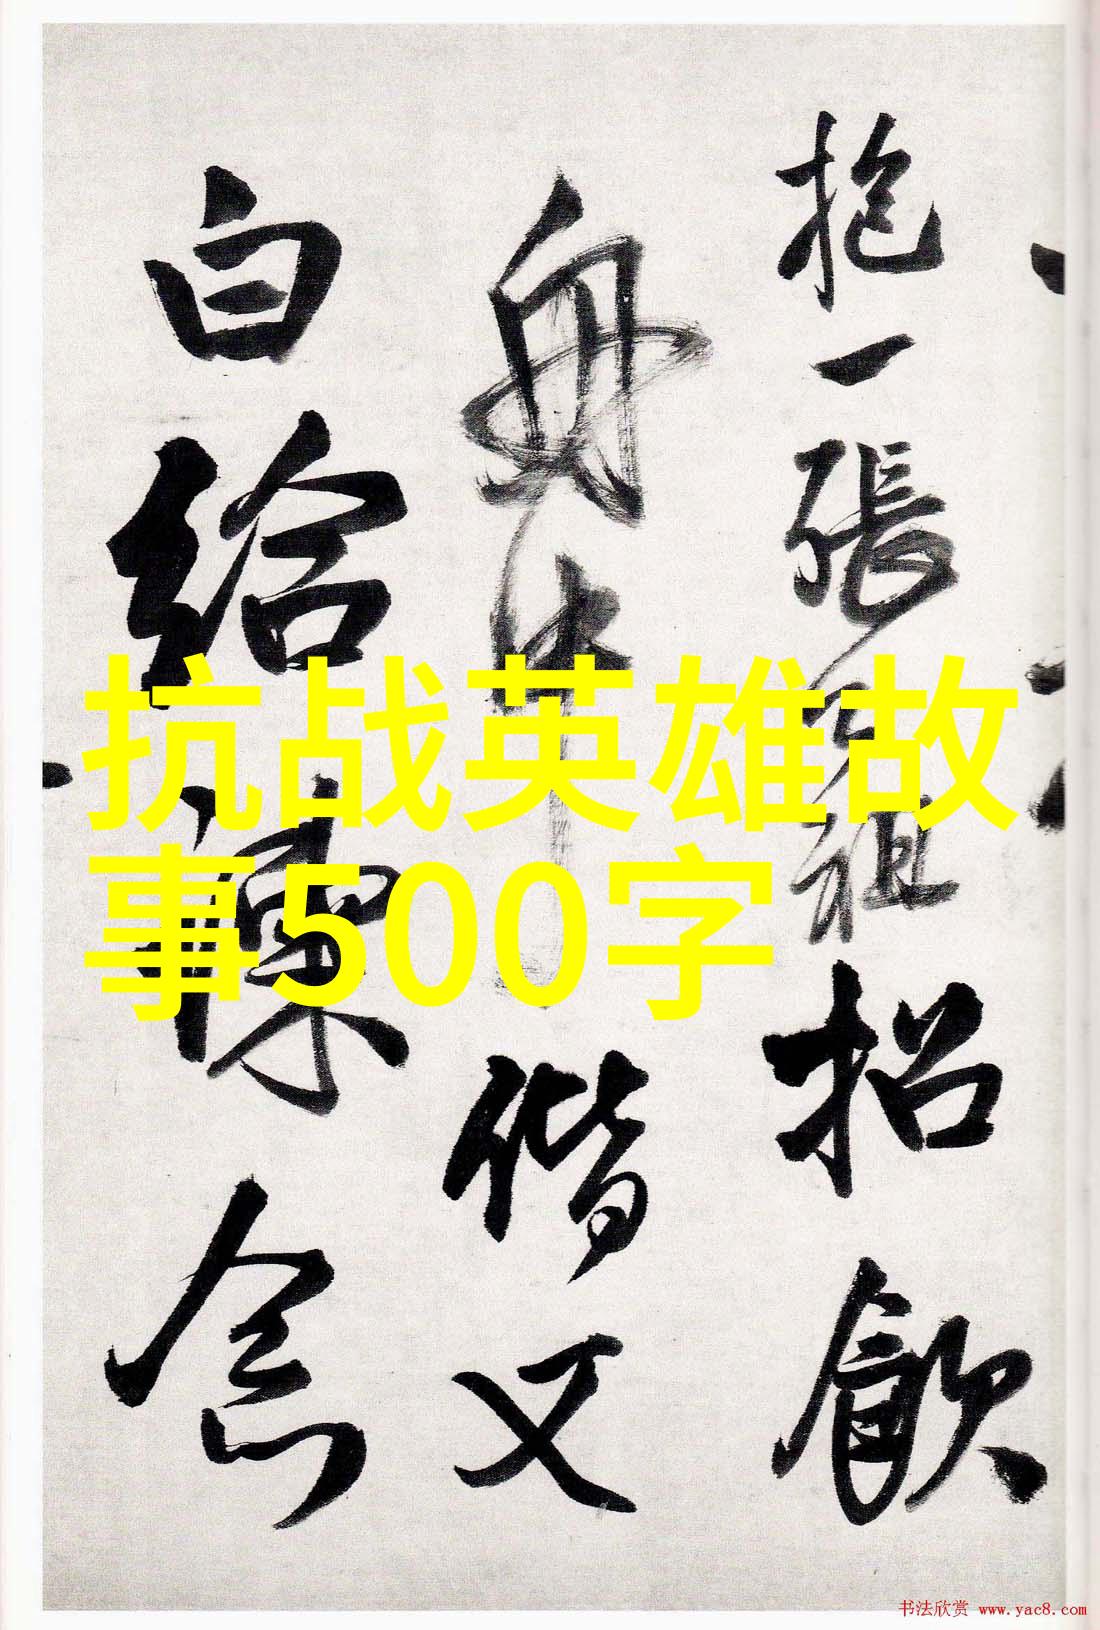 抱一張
招飲
舟中
偕又
白給諫
念
抗战英雄故
事500字
书法欣赏 www.yac8.com